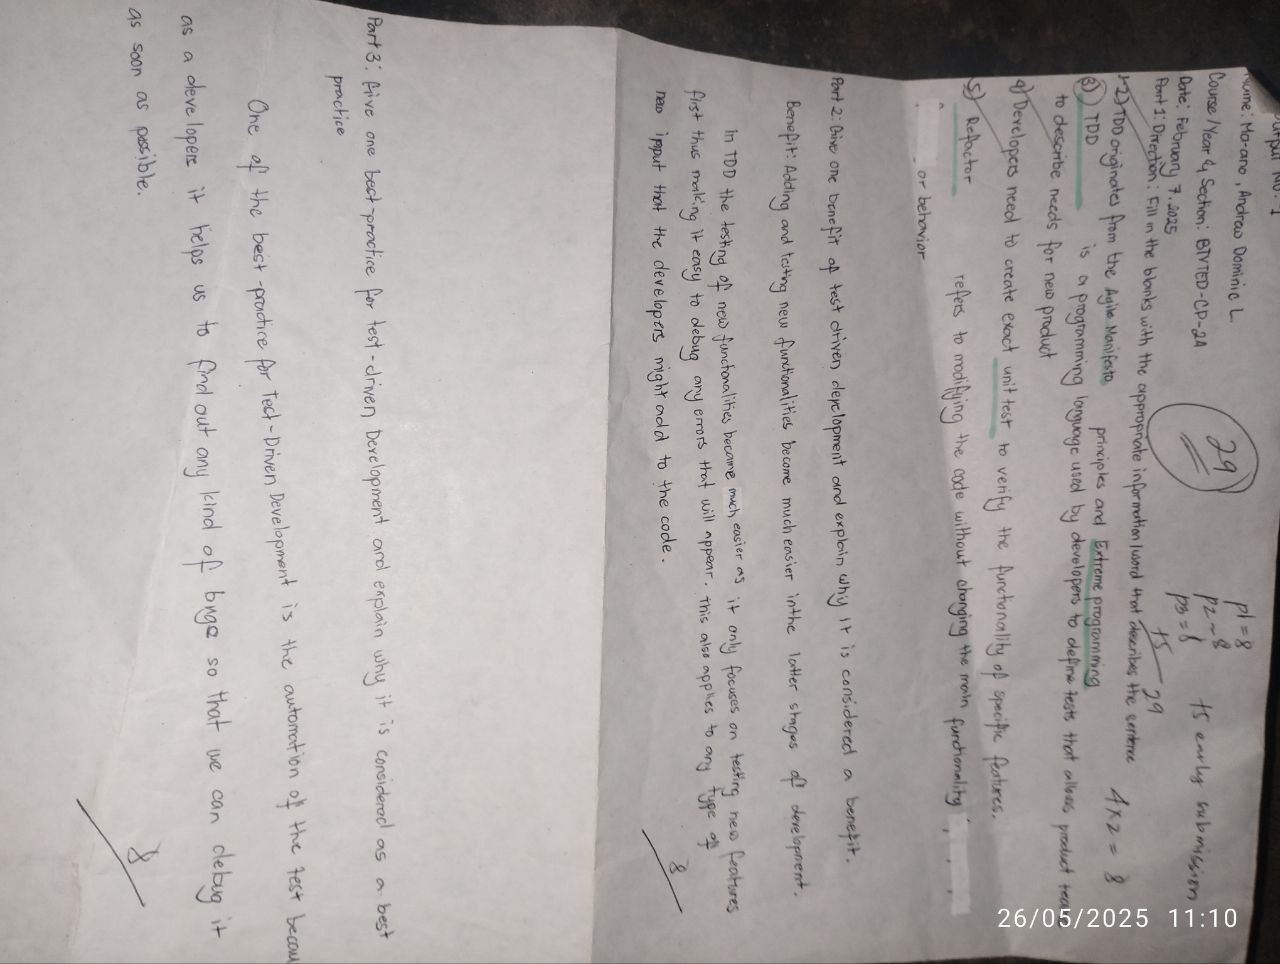 Output No. 1
Name: Mo-ano, Andraw Dominic L.
29
p1 = 8
p2 - 8
p3 = 8
+5
29
+5 early submission
Course/Year & Section: BTVTED-CP-2A
Date: February 7, 2025
Part 1: Direction: Fill in the blanks with the appropriate information/word that describes the sentence
4 x 2 = 8
1-2) TDD originates from the Agile Manifesto principles and Extreme programming
3) TDD is a programming language used by developers to define tests that allows product
to describe needs for new product
4) Developers need to create exact unit test to verify the functionality of specific features.
5) Refactor refers to modifying the code without changing the main functionality
or behavior
Part 2: Give one benefit of test driven development and explain why it is considered a benefit.
Benefit: Adding and testing new functionalities become much easier inthe latter stages of development.
In TDD the testing of new functionalities became much easier as it only focuses on testing new features
first thus making it easy to debug any errors that will appear. This also applies to any type of
new input that the developers might add to the code.
8
Part 3: Give one best-practice for test-driven Development and explain why it is considered as a best
practice
One of the best-practice for Test-Driven Development is the automation of the test becau
as a developers it helps us to find out any kind of bugs so that we can debug it
as soon as possible.
8
26/05/2025 11:10